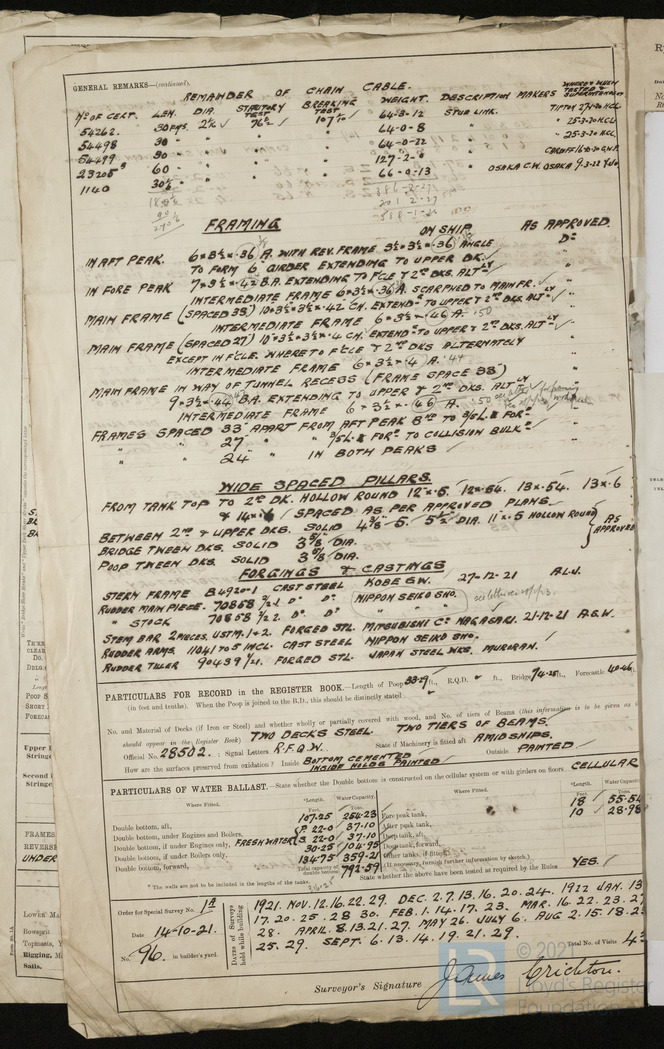 GENERAL REMARKS—(continued).
REMAINDER OF CHAIN CABLE.
No OF CERT. LEN. DIA. STATUTORY TEST BREAKING TEST WEIGHT. DESCRIPTION MAKERS WHERE & WHEN TESTED & SUPERINTENDENT
54262. 30 FMS. 64-3-12 STUD LINK. TIPTON
54498 30 " " " 64-0-8 " 25-3-20 H.C.L.
54499 30 " " " 64-0-22 " 25-3-20 H.C.L.
60 " " " 127-2-0 CARDIFF
1140 " " " 66-0-13 " OSAKA C.W. OSAKA 9-3-22
FRAMING ON SHIP AS APPROVED.
IN AFT PEAK. 6 × 3½ × .36 A. WITH REV. FRAME 3½ × 3½ × .36 ANGLE Do
TO FORM 6" GIRDER EXTENDING TO UPPER DK.
IN FORE PEAK 7 × 3½ × .42 B.A. EXTENDING TO F'CLE & 2ND DKS. ALTLY
INTERMEDIATE FRAME 6 × 3½ × .36 A SCARPHED TO MAIN FR.
MAIN FRAME (SPACED 33) 10 × 3½ × 3½ × .42 CH. EXTENDG TO UPPER & 2ND DKS. ALTLY
INTERMEDIATE FRAME 6 × 3½ × .46 A. .50
MAIN FRAME (SPACED 27) 10 × 3½ × 3½ × .4 CH. EXTENDG TO UPPER & 2ND DKS. ALTLY
EXCEPT IN F'CLE. WHERE TO F'CLE & 2ND DKS ALTERNATELY
INTERMEDIATE FRAME 6 × 3½ × .4 A. .44
MAIN FRAME IN WAY OF TUNNEL RECESS (FRAME SPACE 33)
9 × 3½ × .44 B.A. EXTENDING TO UPPER & 2ND DKS. ALTLY
INTERMEDIATE FRAME 6 × 3½ × .46 A. .50
FRAMES SPACED 33" APART FROM AFT PEAK BHD TO 3/5 L. FORD
" " 27" " " 3/5 L. FORD TO COLLISION BULKD
" " 24" " IN BOTH PEAKS
WIDE SPACED PILLARS.
FROM TANK TOP TO 2ND DK. HOLLOW ROUND 12 × .5. 12 × .54. 13 × .54. 13 × .6
& 14 × .6 SPACED AS PER APPROVED PLANS
BETWEEN 2ND & UPPER DKS. SOLID 4⅜ - 5. 5½ DIA. 11 × .5 HOLLOW ROUND AS APPROVED
BRIDGE TWEEN DKS. SOLID 3⅝ DIA.
POOP TWEEN DKS. SOLID 3⅝ DIA.
FORGINGS & CASTINGS
STERN FRAME B4920-1 CAST STEEL KOBE S.W. 27-12-21 A.L.J.
RUDDER MAIN PIECE. 70858 Do Do NIPPON SEIKO SHO.
" STOCK 70858 Do Do " "
STEM BAR 2 PIECES. USTM. 1 & 2. FORGED STL. MITSUBISHI Co NAGASAKI. 21-12-21 A.G.W.
RUDDER ARMS. 11041 TO 5 INCL. CAST STEEL NIPPON SEIKO SHO.
RUDDER TILLER 90439 FORGED STL. JAPAN STEEL WKS. MURORAN.
PARTICULARS FOR RECORD in the REGISTER BOOK.—Length of Poop 33.29 ft., R.Q.D. ft., Bridge 74.25 ft., Forecastle 40.46
(in feet and tenths). When the Poop is joined to the B.D., this should be distinctly stated
No. and Material of Decks (if Iron or Steel) and whether wholly or partially covered with wood, and No. of tiers of Beams (this information is to be given as it
should appear in the Register Book) TWO DECKS STEEL. TWO TIERS OF BEAMS.
Official No. 28502. ; Signal Letters R.F.Q.W. State if Machinery is fitted aft AMIDSHIPS.
How are the surfaces preserved from oxidation? Inside BOTTOM CEMENTED INSIDE HOLDS PAINTED Outside PAINTED
PARTICULARS OF WATER BALLAST.—State whether the Double bottom is constructed on the cellular system or with girders on floors CELLULAR
Where Fitted. *Length. Water Capacity. Where Fitted. *Length. Water Capacity.
Feet. Tons. Feet. Tons.
Double bottom, aft, 107.25 254.23 Fore peak tank, 18 55.54
Double bottom, under Engines and Boilers, P. 22.0 37.10 After peak tank, 10 28.98
Double bottom, if under Engines only, FRESH WATER S. 22.0 37.10 Deep tank, aft,
Double bottom, if under Boilers only, 30.25 104.95 Deep tank, forward,
Double bottom, forward, 134.75 359.21 Other tanks, if fitted,
Total capacity of double bottom 792.59 (If necessary, furnish further information by sketch.)
* The wells are not to be included in the lengths of the tanks. State whether the above have been tested as required by the Rules YES.
Order for Special Survey No. 1A
Date 14-10-21.
No. 96. in builder's yard.
Dates of Surveys held while building
1921. NOV. 12.16.22.29. DEC. 2.7.13.16.20.24. 1922 JAN. 13
17.20.25.28.30. FEB. 1.14.17.23. MAR. 16.22.23.27
28. APRIL. 8.13.21.27. MAY 26. JULY 6. AUG 2.15.18.2
25.29. SEPT. 6.13.14.19.21.29.
Total No. of Visits 43
Surveyor's Signature James Crichton.
© 2021
Lloyd's Register
Foundation